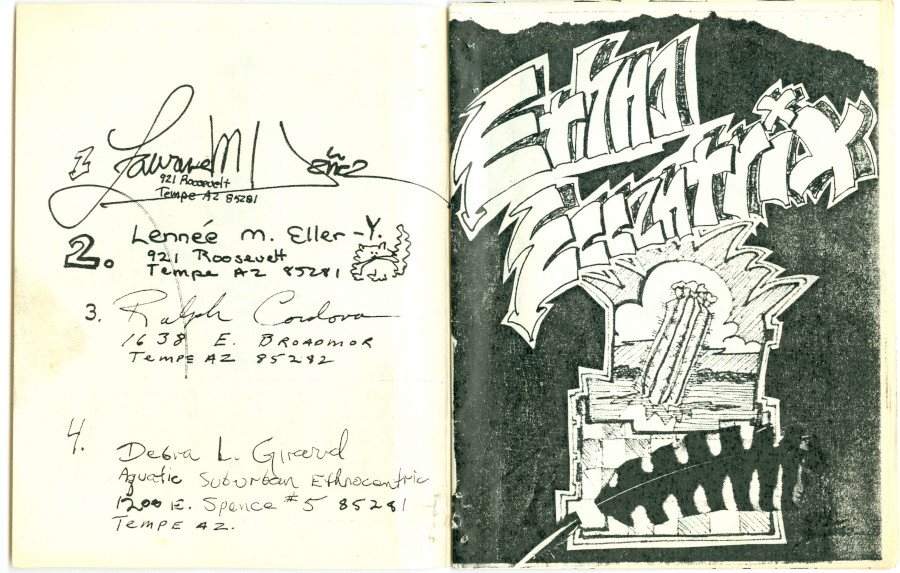 921 Roosevelt
Tempe AZ 85281
2. Lenneé M. Eller-Y.
921 Roosevelt
Tempe AZ 85281
3. Ralph Cordova
1638 E. BROADMOR
TEMPE AZ 85282
4.
Debra L. Girard
Aquatic Suburban Ethnocentric
1200 E. Spence #5 85281
TEMPE AZ.
Ethno
Eccentrix